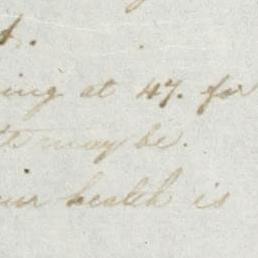 t.
ing at 47. for
may be.
our health is